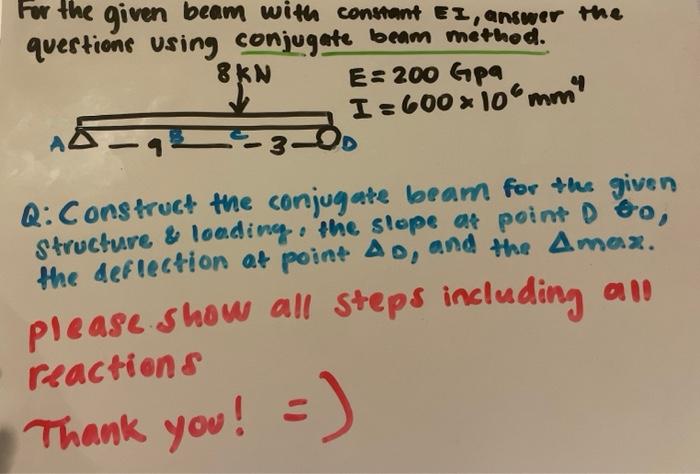 For the given beam with constant EI, answer the
questions using conjugate beam method.
8 KN E = 200 Gpa
I = 600 x 10⁶ mm⁴
A — 9 B — C — 3 — D
Q: Construct the conjugate beam for the given
structure & loading, the slope at point D θD,
the deflection at point ΔD, and the Δmax.
please show all steps including all
reactions
Thank you! =)